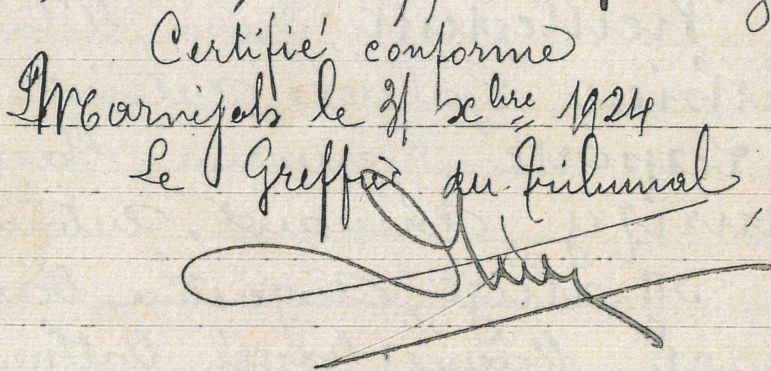 Certifié conforme
Marvejols le 31 xbre 1924
Le Greffier du Tribunal